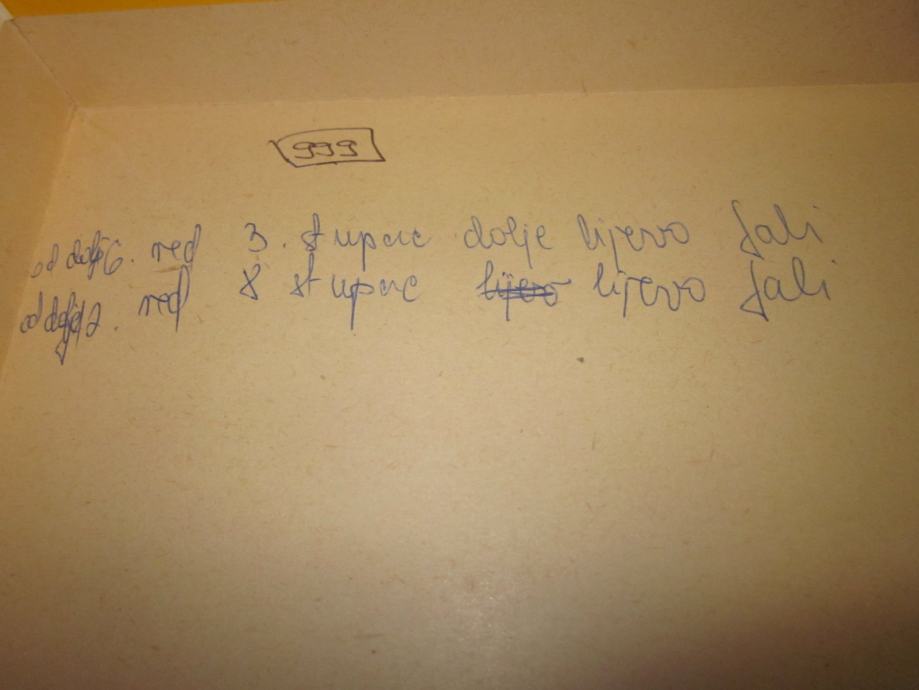 999
od dolje 6. red 3. stupac dolje lijevo fali
od dolje 2. red 8 stupac lijevo lijevo fali